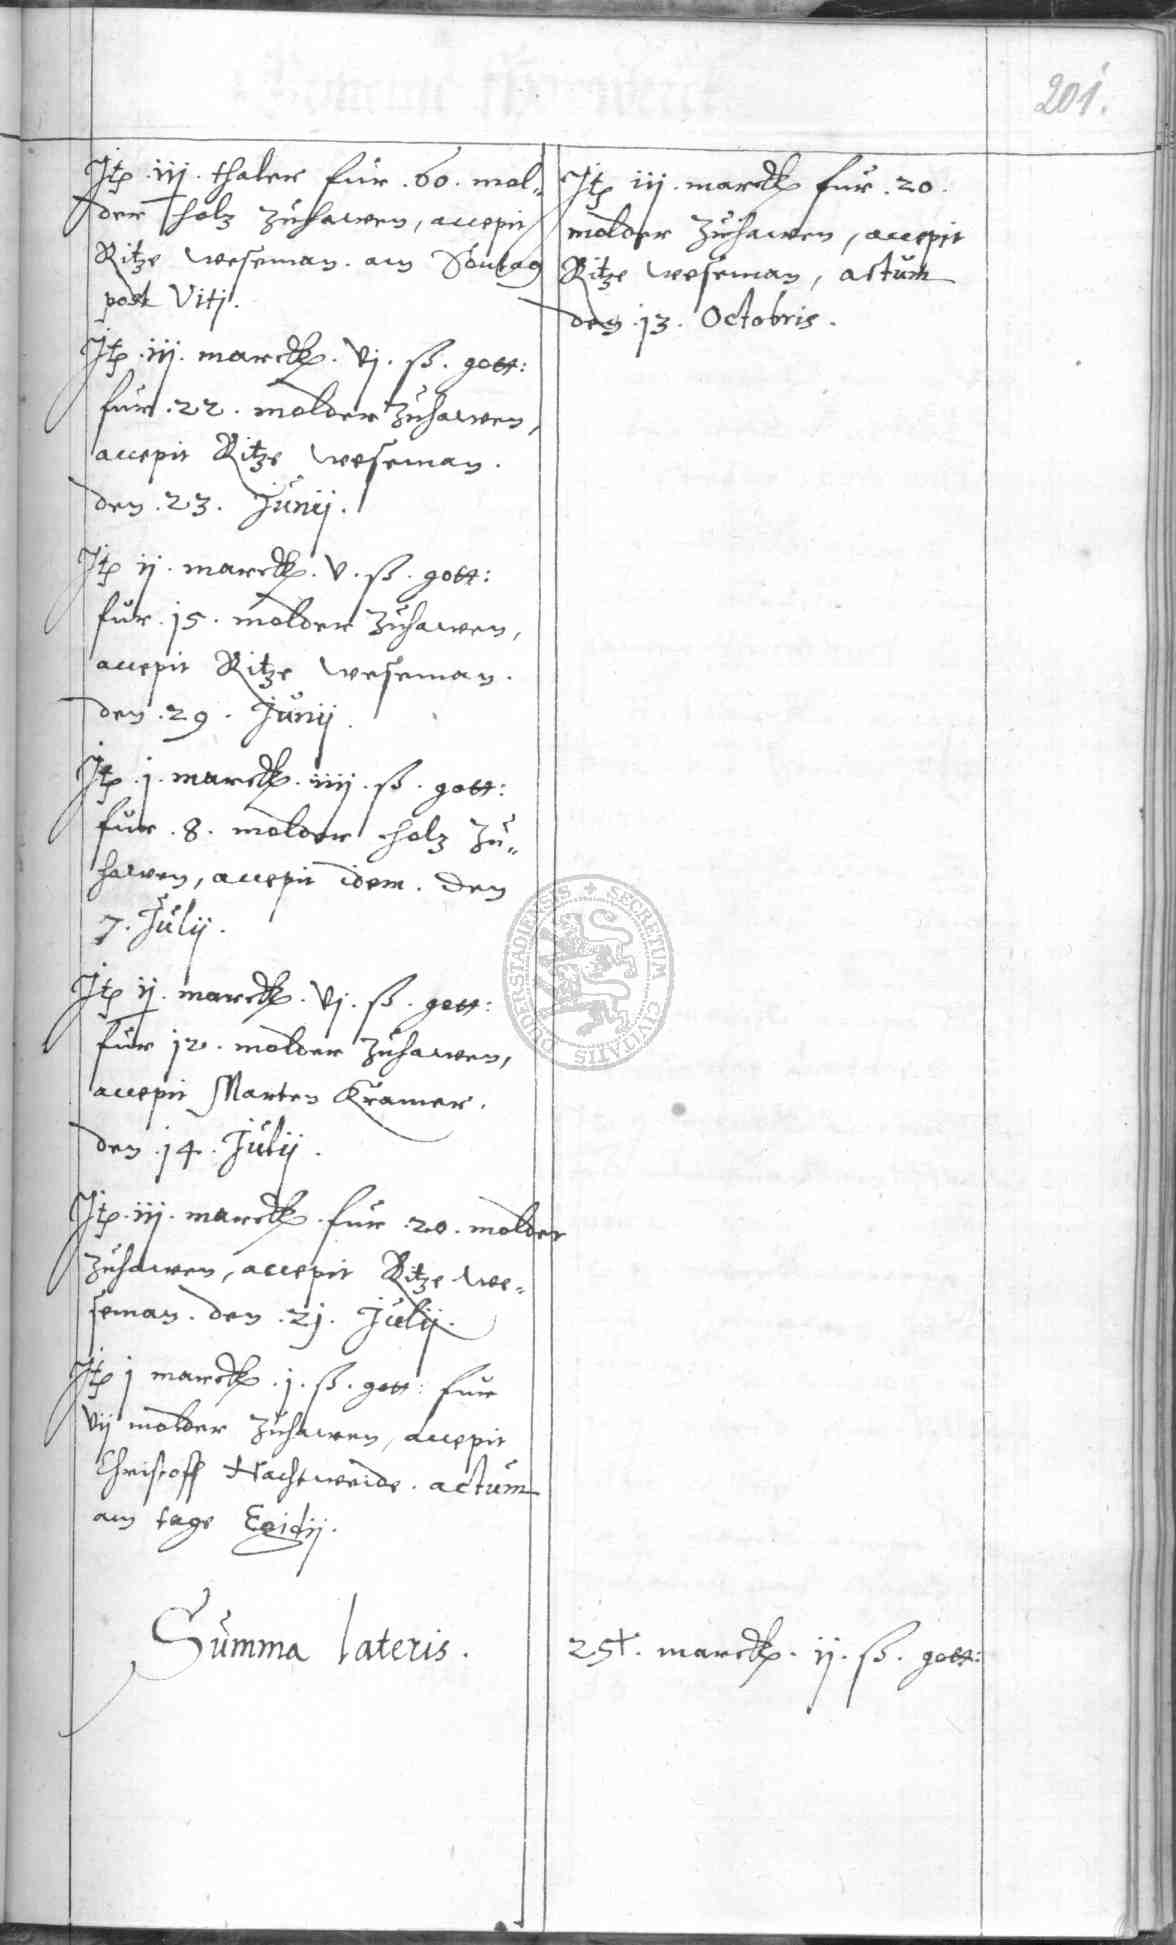 201.
Itē .iij. thaler für .60. mol„
der holz zuhawen, accepit
Ritze Weseman. am Sontag
post Viti.
Itē .iij. marck. vj. ß. gott:
für .22. molder zuhawen,
accepit Ritze Weseman.
den .23. Junij.
Itē ij. marck. v. ß. gott:
für .15. molder zuhawen,
accepit Ritze Weseman.
den .29. Junij.
Itē .j. marck. iiij. ß. gott:
für .8. molder holz zu„
hawen, accepit idem. den
7. Julij.
Itē ij. marck. vj. ß. gott:
für 12. molder zuhawen,
accepit Marten Kramer.
den .14. Julij.
Itē .iij. marck. für .20. molder
zuhawen, accepit Ritze We„
seman. den .21. Julij.
Itē j marck. j. ß. gott: fur
vij molder zuhawen, accepit
Christoff Nachtweide. actum
am tage Egidij.
Summa lateris.
Itē iij. marck für .20.
molder zuhawen, accepit
Ritze Weseman, actum
den .13. Octobris.
marck. ij. ß. gott:
DUDERSTADIENSIS + SECRETUM CIVITATIS